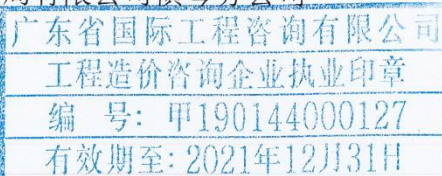 广东省国际工程咨询有限公司
工程造价咨询企业执业印章
编 号: 甲190144000127
有效期至: 2021年12月31日